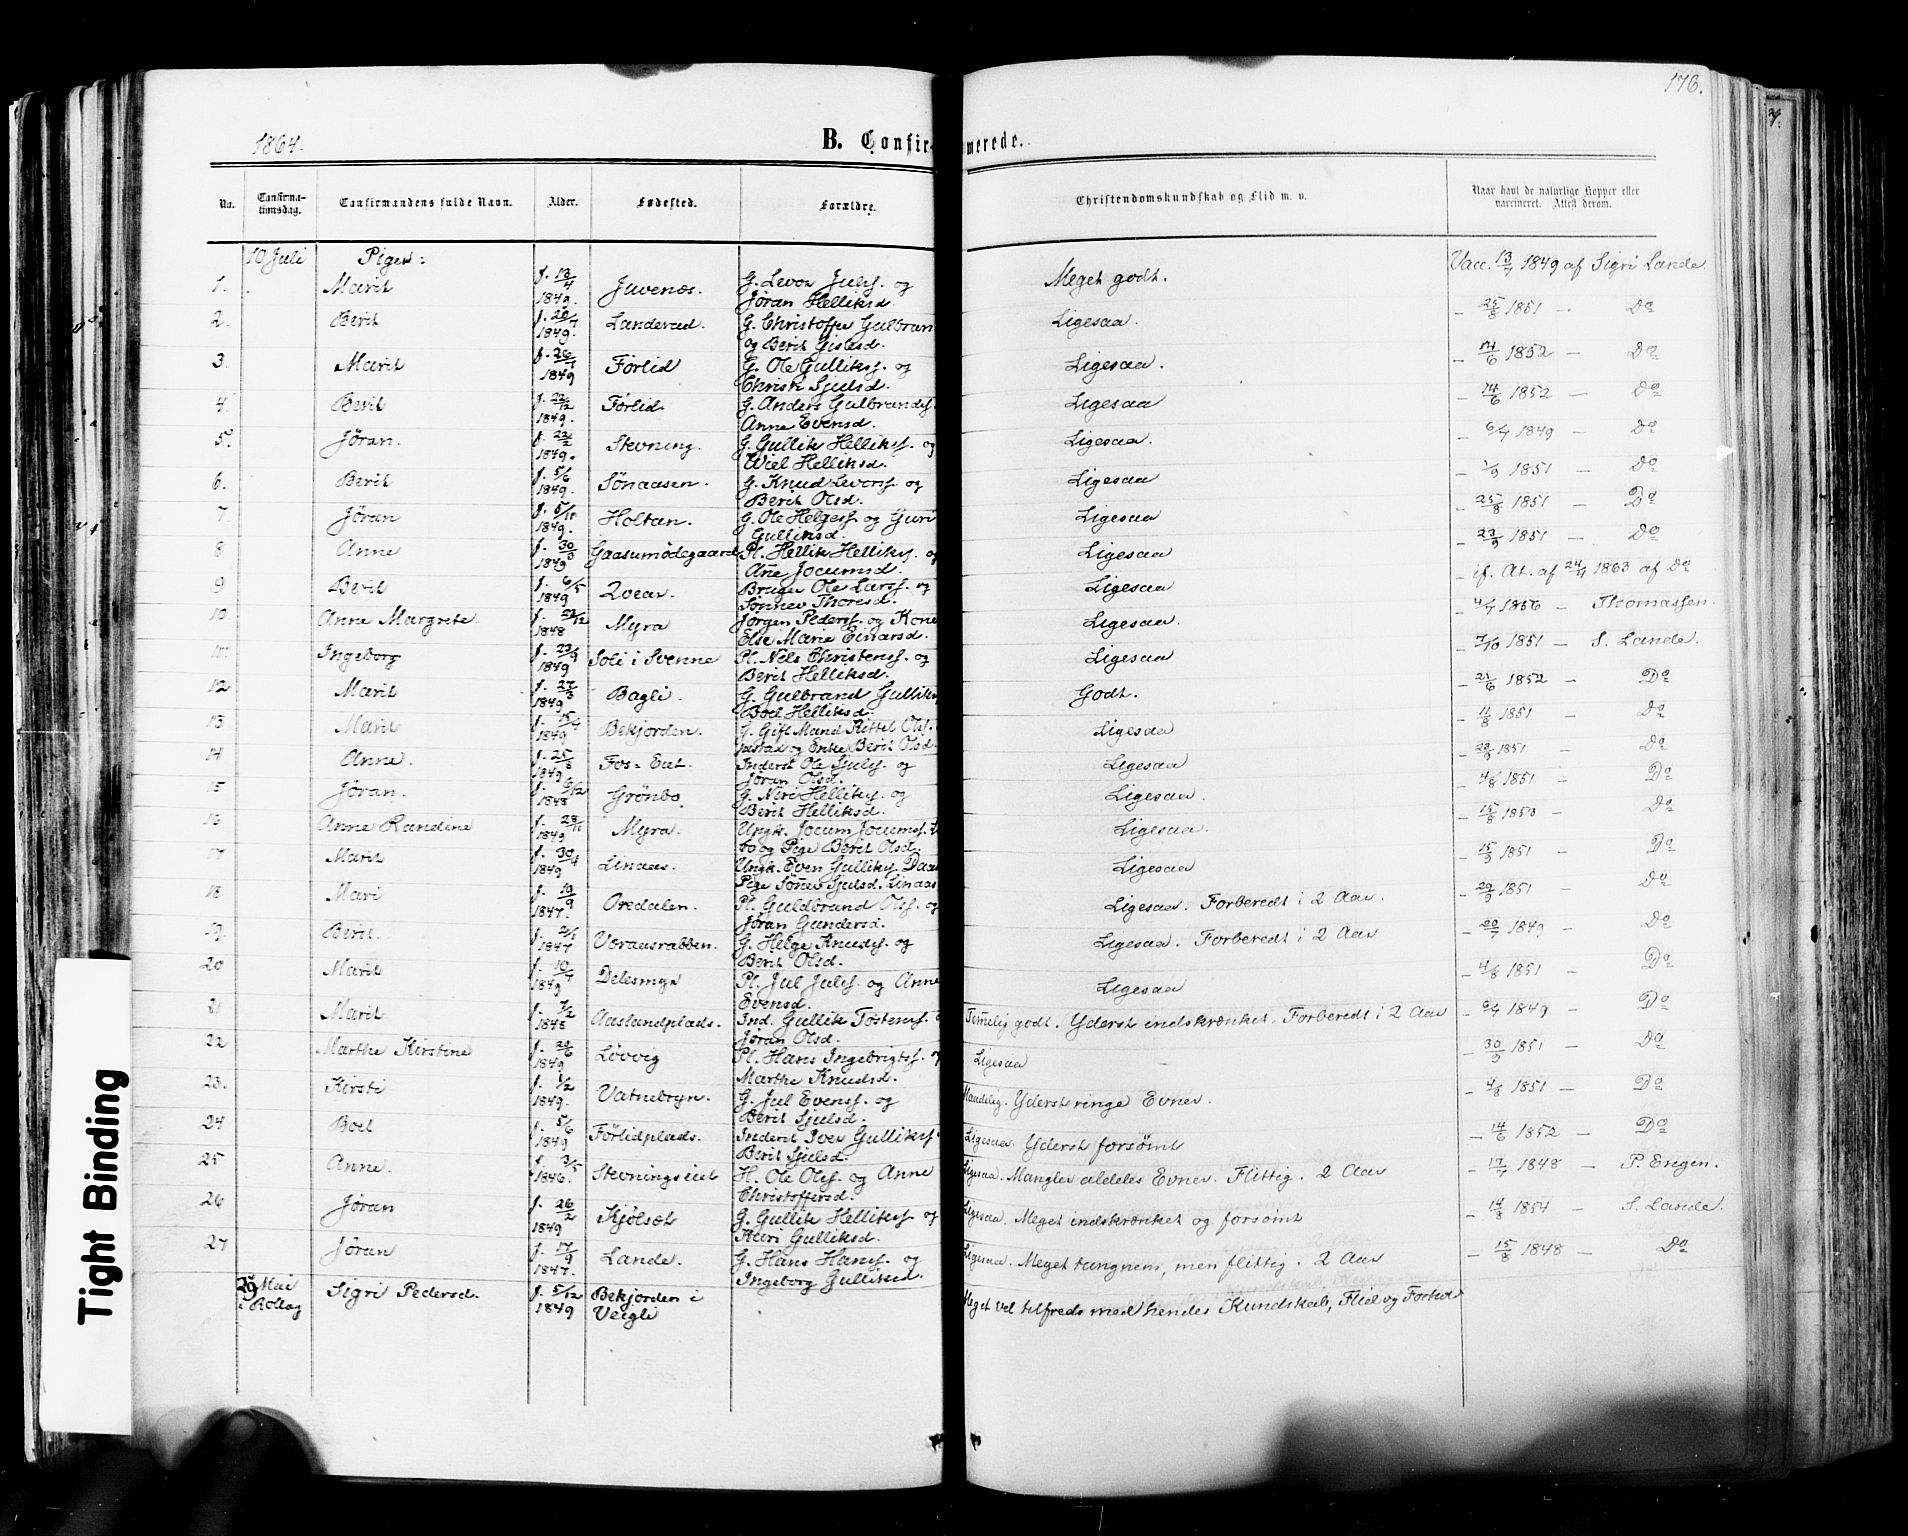 176.
1864.
B. Confirmerede.
No. Confirmationsdag. Confirmandens fulde Navn. Alder. Fødested. Forældre. Christendomskundskab og Flid m. v. Naar havt de naturlige Kopper eller vaccineret. Attest derom.
10 Juli Piger:
1. Marit f. 13/4 1849. Juvenæs. G. Levor Julsf. og Jøran Helliksd. Meget godt. Vacc. 13/7 1849 af Sigri Lande
2. Berit 1849. Landerud. G. Christoffer Gulbran og Berit Gislesd. Ligesaa. - 25/8 1851 - Do
3. Marit 1849 Førlid G. Ole Gulliksf. og Christi Sjulsd. Ligesaa. - 14/6 1852 - Do
4. Berit f. 22/12 1849. Førlid. G. Anders Gulbrandsf. Anne Evensd. Ligesaa - 14/6 1852 - Do
5. Jøran. f. 22/2 1849. Stevning. G. Gullik Helliksf. og Wiel Helliksd. Ligesaa. - 6/7 1849 - Do
6. Berit f. 5/6 1849. Sønaasen. G. Knud Levorsf. og Berit Olsd. Ligesaa - 1/9 1851 - Do
7. Jøran 1849. Holtan. G. Ole Helgesf. og Guri Gulliksd. Ligesaa - 25/8 1851 - Do
8 Anne f. 30/3 1849 Gaasumødegaard Pl. Hellik Helliksf. og Anne Jocumsd. Ligesaa - 23/9 1851 - Do
9 Berit f. 6/5 1849 Bruger Ole Larsf. og Sønnev Thoresd. Ligesaa - if. At. af 24/4 1863 af Do
10. Anne Margrete f. 23/12 1848 Myra Jørgen Pedersf. og Kone Else Marie Einarsd. Ligesaa. - 4/7 1856 - Thomassen.
11. Ingeborg f. 23/9 1849 Soli i Svenne Pl. Nels Christensf. og Berit Helliksd. Ligesaa - 7/10 1851 - S. Lande.
12 Marit f. 27/3 1849 Bagli. G. Gulbrand Gulliks Boel Helliksd. Godt. - 21/6 1852 - Do
13 Marit 1849 Bekjorden. G. Gift Mand Kittel Olsf. og Enke Berit Olsd. Ligesaa - 11/8 1851 - Do
14 Anne. 1849 Fos-Eiet. Inderst Ole Julsf. og Jøran Olsd. Ligesaa - 23/9 1851 - Do
15 Jøran. f. 6/12 1848 Grønbo G. Niri Helliksf. og Berit Helliksd. Ligesaa. - 4/8 1851 - Do
16 Anne Randine 1849 Myra. Ungk. Jocum Jocumsf. og Pige Berit Olsd. Ligesaa. - 15/8 1853 - Do
17 Marit 1849 Linaas. Ungk. Even Gulliksf. Daa Pige Sønnev Sjulsd. Linaas Ligesaa - 15/9 1851 - Do
18 Mari f. 19/9 1847. Oredalen. Pl. Guldbrand Olsf. og Jøran Gundersd. Ligesaa. Forberedt i 2 Aar. - 29/9 1851 - Do
19. Berit. 1847 Voraasrabben. G. Helge Knudsf. og Berit Olsd. Ligesaa. Forberedt i 2 Aar - 20/7 1849 - Do
20 Marit 1849 Delesmyr Pl. Jul Julsf. og Anne Evensd. Ligesaa - 4/8 1851 - Do
21 Marit f. 7/2 1848 Aaslandplads. Ind. Gullik Tostensf. Jøran Olsd. Temmelig godt. Yderst indskrænket. Forberedt i 2 Aar - 6/7 1849 - Do
22 Marthe Kirstine f. 20/6 1849 Løvvig Pl. Hans Ingebrigtsf. og Marthe Knudsd. Ligesaa - 30/9 1851 - Do
23. Kirsti f. 1/2 1849. Vatnebryn. G. Jul Evensf. og Berit Sjulsd. Maadelig. Yderst ringe Evner. - 4/8 1851 - Do
24 Boel f. 5/6 1849 Førlidplads. Inderst Iver Gulliksf. Berit Sjulsd. Ligesaa. Yderst forsømt - 14/6 1852 - Do
25 Anne. f. 3/5 1846. Stevningseiet H. Ole Olsf. og Anne Christoffersd. Ligesaa. Mangler aldeles Evner. Flittig. 2 Aar - 17/7 1848 - P. Engen.
26 Jøran f. 26/2 1849 Kjølset G. Gullik Helliksf. og Guri Gulliksd. Ligesaa. Meget indskrænket og forsømt - 14/8 1854 - S. Lande.
27 Jøran f. 17/9 1847. Lande. G. Hans Hansf. og Ingeborg Gulliksd. Ligesaa. Meget tungnem, men flittig. 2 Aar - 15/8 1848 - Do
29 Mai i Rollag Sigri Pedersd. f. 5/12 1849 Bekjorden i Veigli Meget vel tilfreds med hendes Kundskab, Flid og Forhold
Tight Binding